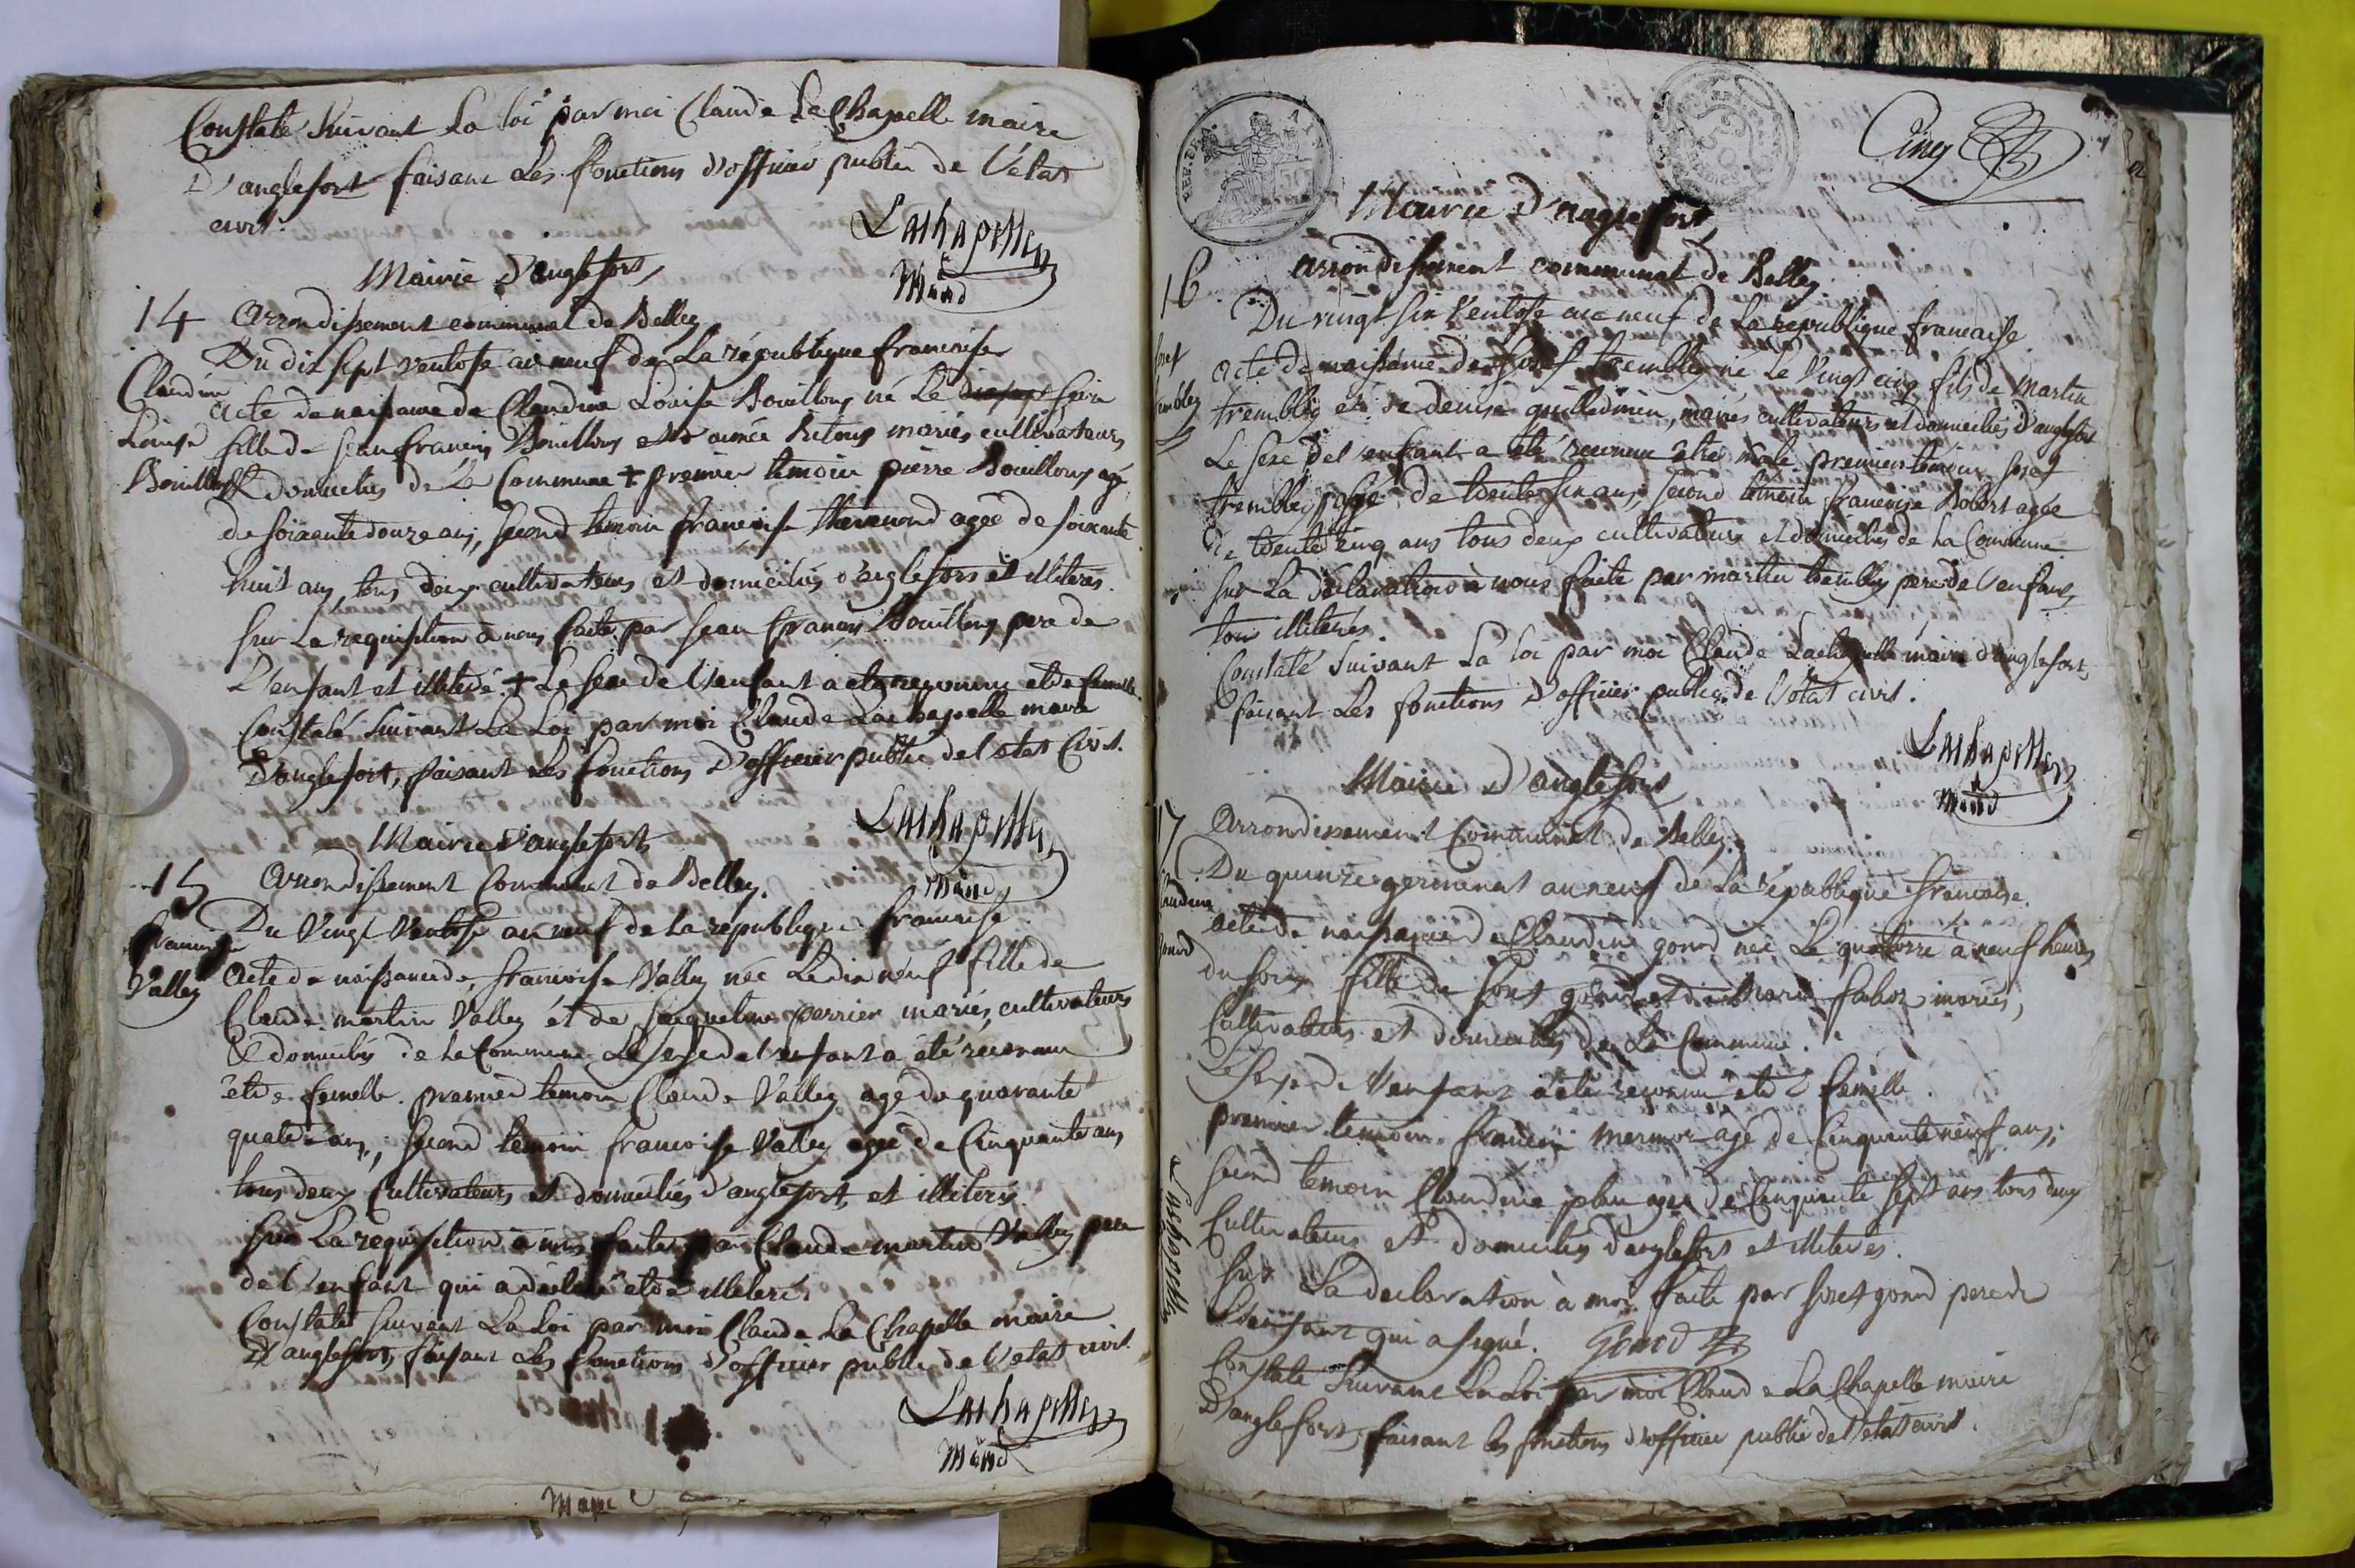 Constaté Suivant La loi par moi Claude LaChapelle maire
D'anglefort faisant Les fonctions d'officier public de l'état
civil.
Lachapelle
Maire
Mairie d'anglefort
14 arrondissement communal de Belley
Du dix sept ventose an neuf de La république francaise
Claudine
Louise
Bouillon
acte de naissance de Claudine Louise Bouillon né Le
fille de jean francois Bouillon et d'aimée mariés cultivateurs
& domiciliés de La Commune + premier témoin pierre Bouillon agé
de soixante douze ans, second temoin francoise agée de soixante
huit ans, tous deux cultivateurs et domiciliés d'anglefort et illiterés.
sur La requisition à nous faite par jean francois Bouillon pere de
L'enfant et illiteré. + Le sexe de l'enfant a été reconnu etre femelle.
Constaté suivant La Loi par moi Claude Lachapelle maire
D'anglefort, faisant Les fonctions d'officier public de l'etat Civil.
Lachapelle
Maire
Mairie d'anglefort
15 arrondissement Communal de Belley.
Du Vingt Ventose an neuf de la republique francaise.
francoise
Valley
acte de naissance de francoise Valley née Le dix neuf fille de
Claude martin Valley et de jacqueline perrier mariés, cultivateurs
& domiciliés de la Commune Le sexe de l'enfant a été reconnu
etre femelle. premier temoin Claude Valley agé de quarante
quatre ans, second temoin francoise Valley agée de Cinquante ans
tous deux Cultivateurs et domiciliés d'anglefort et illiterés.
sur La requisition à nous faite par Claude martin Valley pere
de l'enfant qui a déclaré etre illiteré.
Constaté suivant La Loi par moi Claude La Chapelle maire
D'anglefort, faisant Les fonctions d'officier public de l'etat civil.
Lachapelle
Maire
Maire
Cinq
REP. FRA.
Mairie d'anglefort
16 arrondissement communal de Belley.
Du vingt six Ventose an neuf de La republique francaise.
acte de naissance de josef trembley né Le Vingt cinq fils de Martin
trembley et de denise mariés cultivateurs et domiciliés d'anglefort
Le sexe de l'enfant a été reconnu etre male. premier témoin josef
trembley agé de trente six ans, second témoin francoise Robert agée
de trente cinq ans tous deux cultivateurs et domiciliés de La Commune.
sur La déclaration à nous faite par martin trembley pere de l'enfant,
tous illiterés.
Constaté suivant La loi par moi Claude Lachapelle maire d'anglefort,
faisant Les fonctions d'officier public de l'état civil.
Lachapelle
Maire
Mairie d'anglefort
17 arrondissement Communal de Belley.
Du quinze germinal an neuf de La république francaise.
Claudine
gonod
acte de naissance de Claudine gonod née Le quatorze à neuf heures
du soir fille de josef gonod et de Marie mariés,
Cultivateurs et domiciliés de La Commune.
Le sexe de l'enfant a été reconnu etre femelle.
premier temoin francois mermoz agé de Cinquante neuf ans,
second temoin Claudine agée de Cinquante sept ans tous deux
Cultivateurs et domiciliés d'anglefort et illiterés.
Lachapelle
sur La declaration à moi faite par josef gonod pere de
L'enfant qui a signé. Gonod
Constaté suivant La Loi par moi Claude La Chapelle maire
D'anglefort, faisant les fonctions d'officier public de l'etat civil.